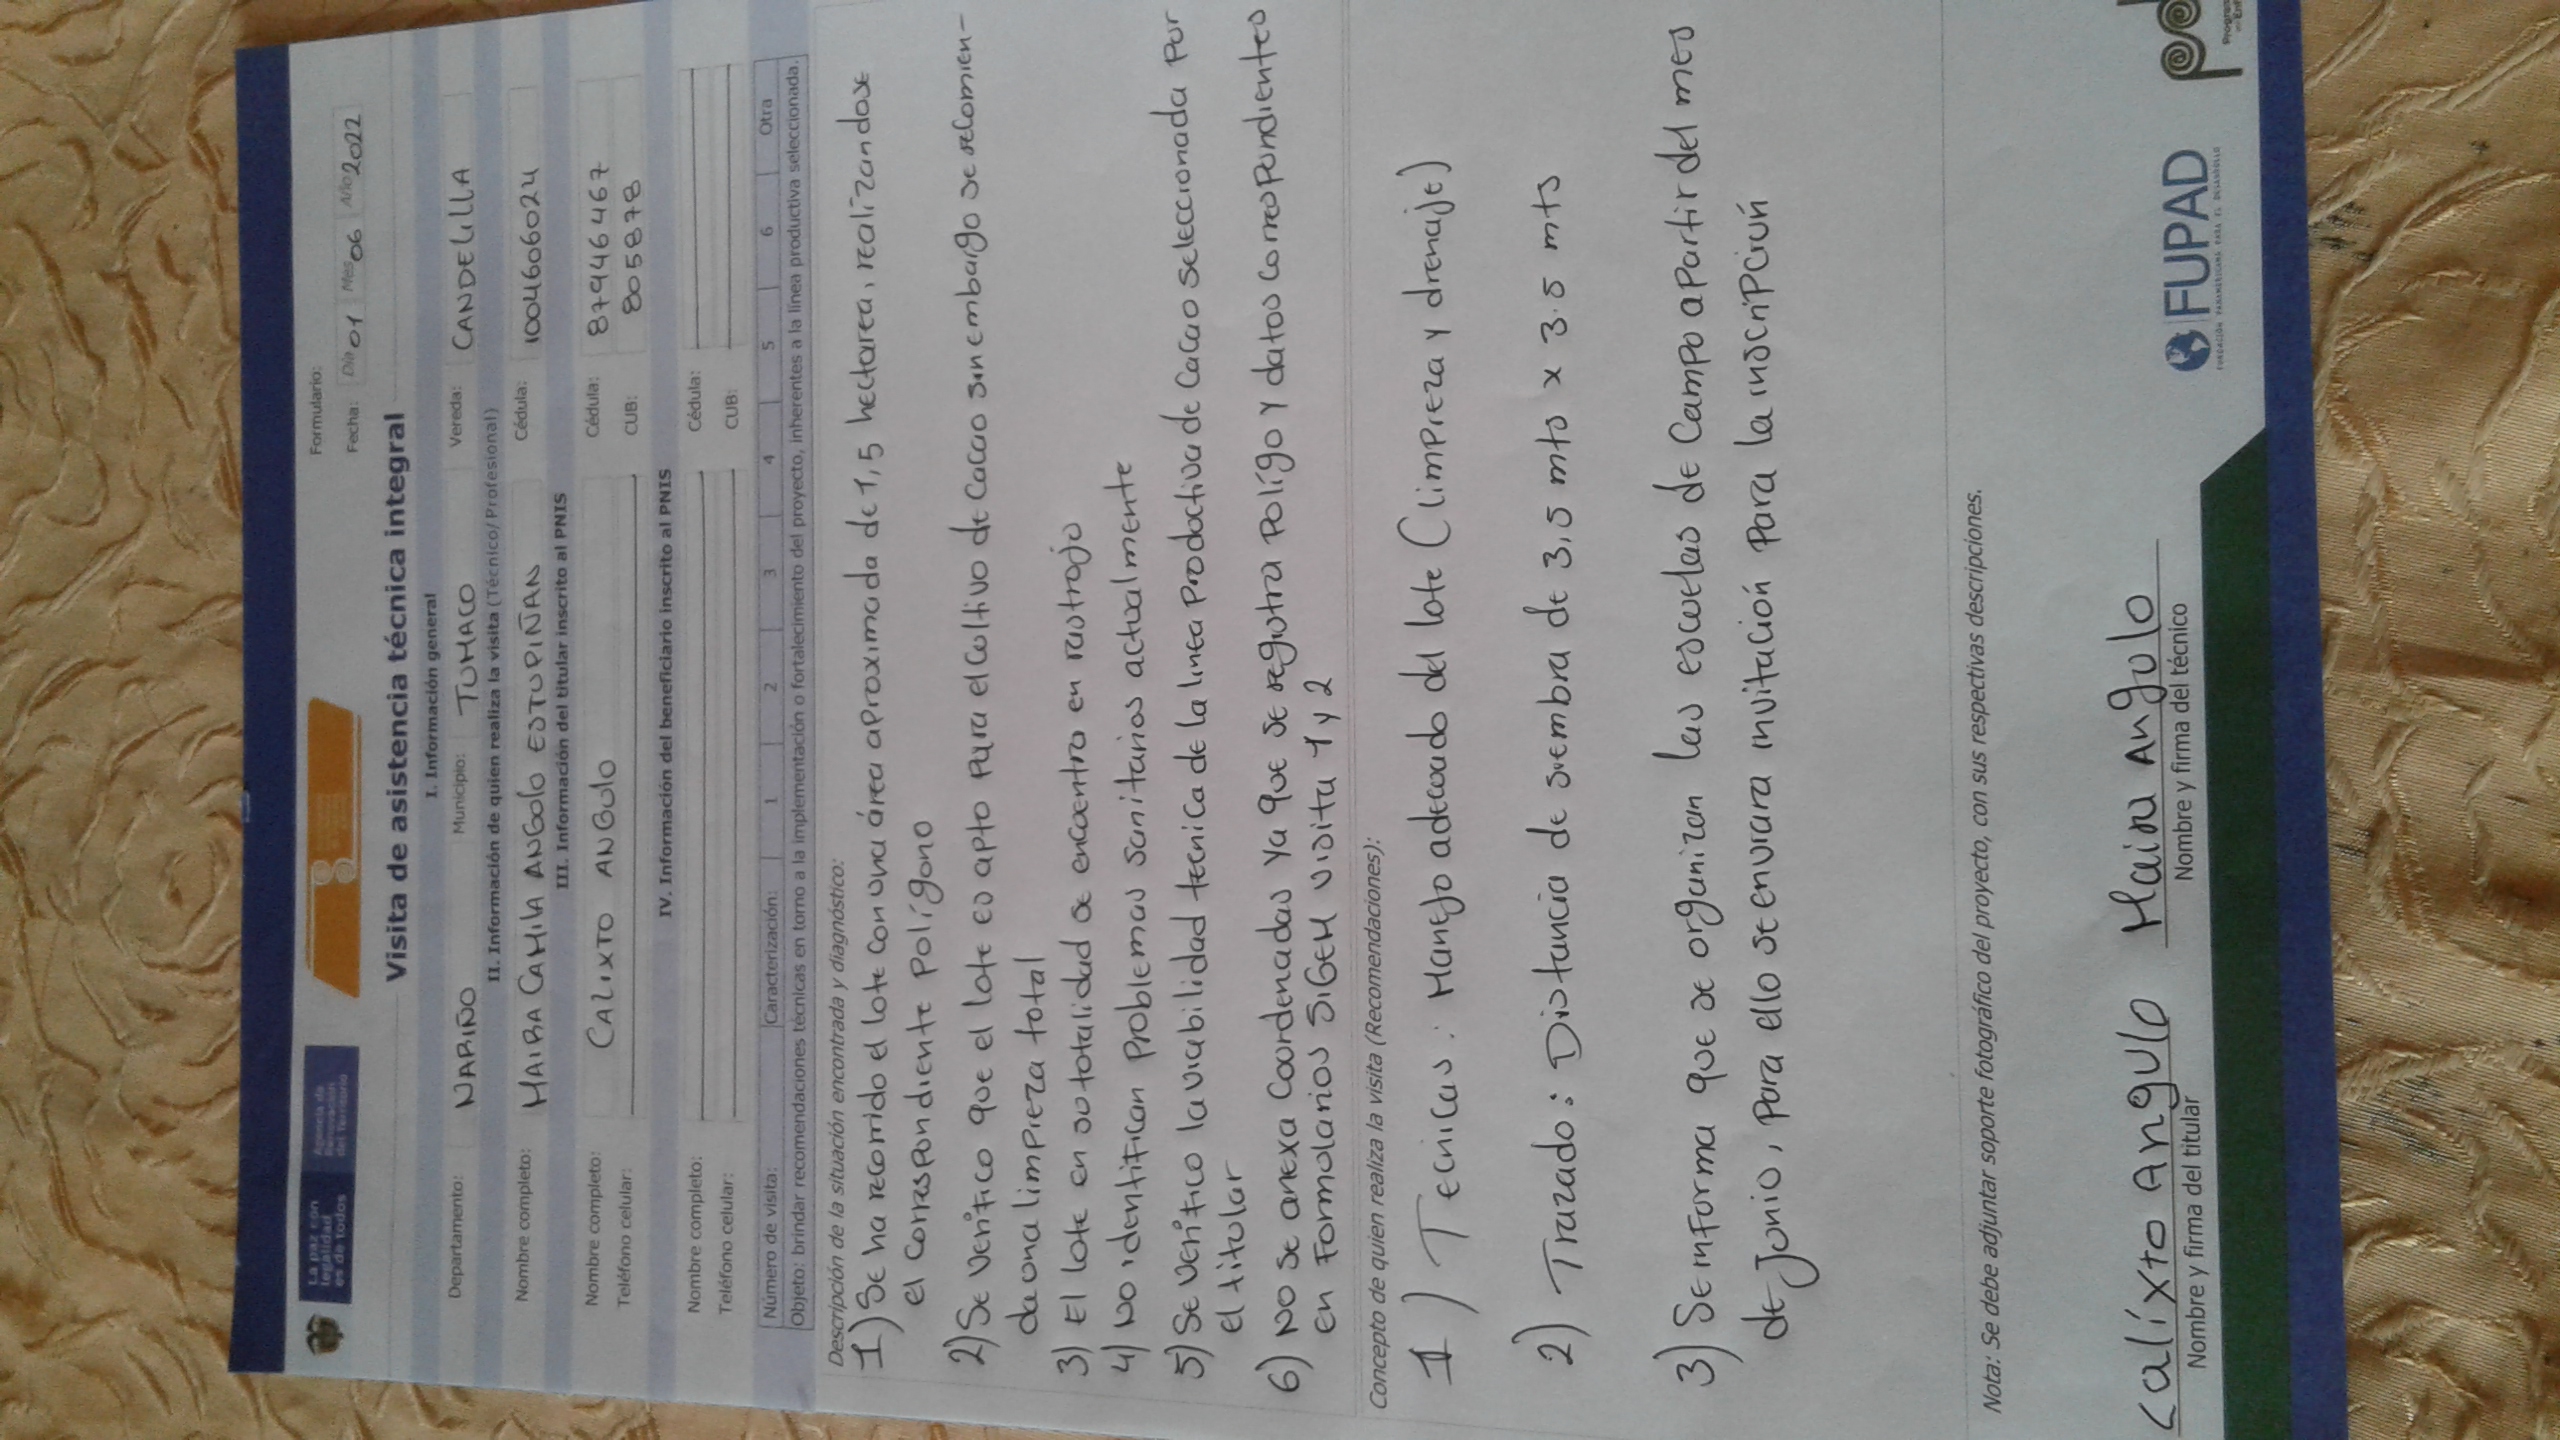 La paz con
legalidad
es de todos
Agencia de
Renovación
del Territorio
Formulario:
Fecha: Día 01 Mes 06 Año 2022
Visita de asistencia técnica integral
I. Información general
Departamento: NARIÑO Municipio: TUMACO Vereda: CANDELILLA
II. Información de quien realiza la visita (Técnico/ Profesional)
Nombre completo: MAIRA CAMILA ANGULO ESTUPIÑAN Cédula: 1004606024
III. Información del titular inscrito al PNIS
Nombre completo: CALIXTO ANGULO Cédula: 87946467
Teléfono celular: CUB: 805878
IV. Información del beneficiario inscrito al PNIS
Nombre completo: Cédula:
Teléfono celular: CUB:
Número de visita: Caracterización: 1 2 3 4 5 6 Otra
Objeto: brindar recomendaciones técnicas en torno a la implementación o fortalecimiento del proyecto, inherentes a la línea productiva seleccionada.
Descripción de la situación encontrada y diagnóstico:
1) Se ha recorrido el lote con una área aproximada de 1,5 hectarea, realizandose
el correspondiente polígono
2) Se verifico que el lote es apto para el cultivo de cacao sin embargo se recomien-
da una limpieza total
3) El lote en su totalidad se encuentra en rastrojo
4) No identifican problemas sanitarios actualmente
5) Se verifico la viabilidad tecnica de la linea productiva de cacao seleccionada por
el titular
6) No se anexa coordenadas ya que se registra polígo y datos correspondientes
en formularios SIGEM visita 1 y 2
Concepto de quien realiza la visita (Recomendaciones):
1) Tecnicas: Manejo adecuado del lote (limpieza y drenaje)
2) Trazado: Distancia de siembra de 3,5 mts x 3.5 mts
3) Se informa que se organizan las escuelas de campo apartir del mes
de Junio, para ello se enviara invitación para la inscripción
Nota: Se debe adjuntar soporte fotográfico del proyecto, con sus respectivas descripciones.
Calixto Angulo Maira Angulo
Nombre y firma del titular Nombre y firma del técnico
FUPAD
FUNDACIÓN PANAMERICANA PARA EL DESARROLLO